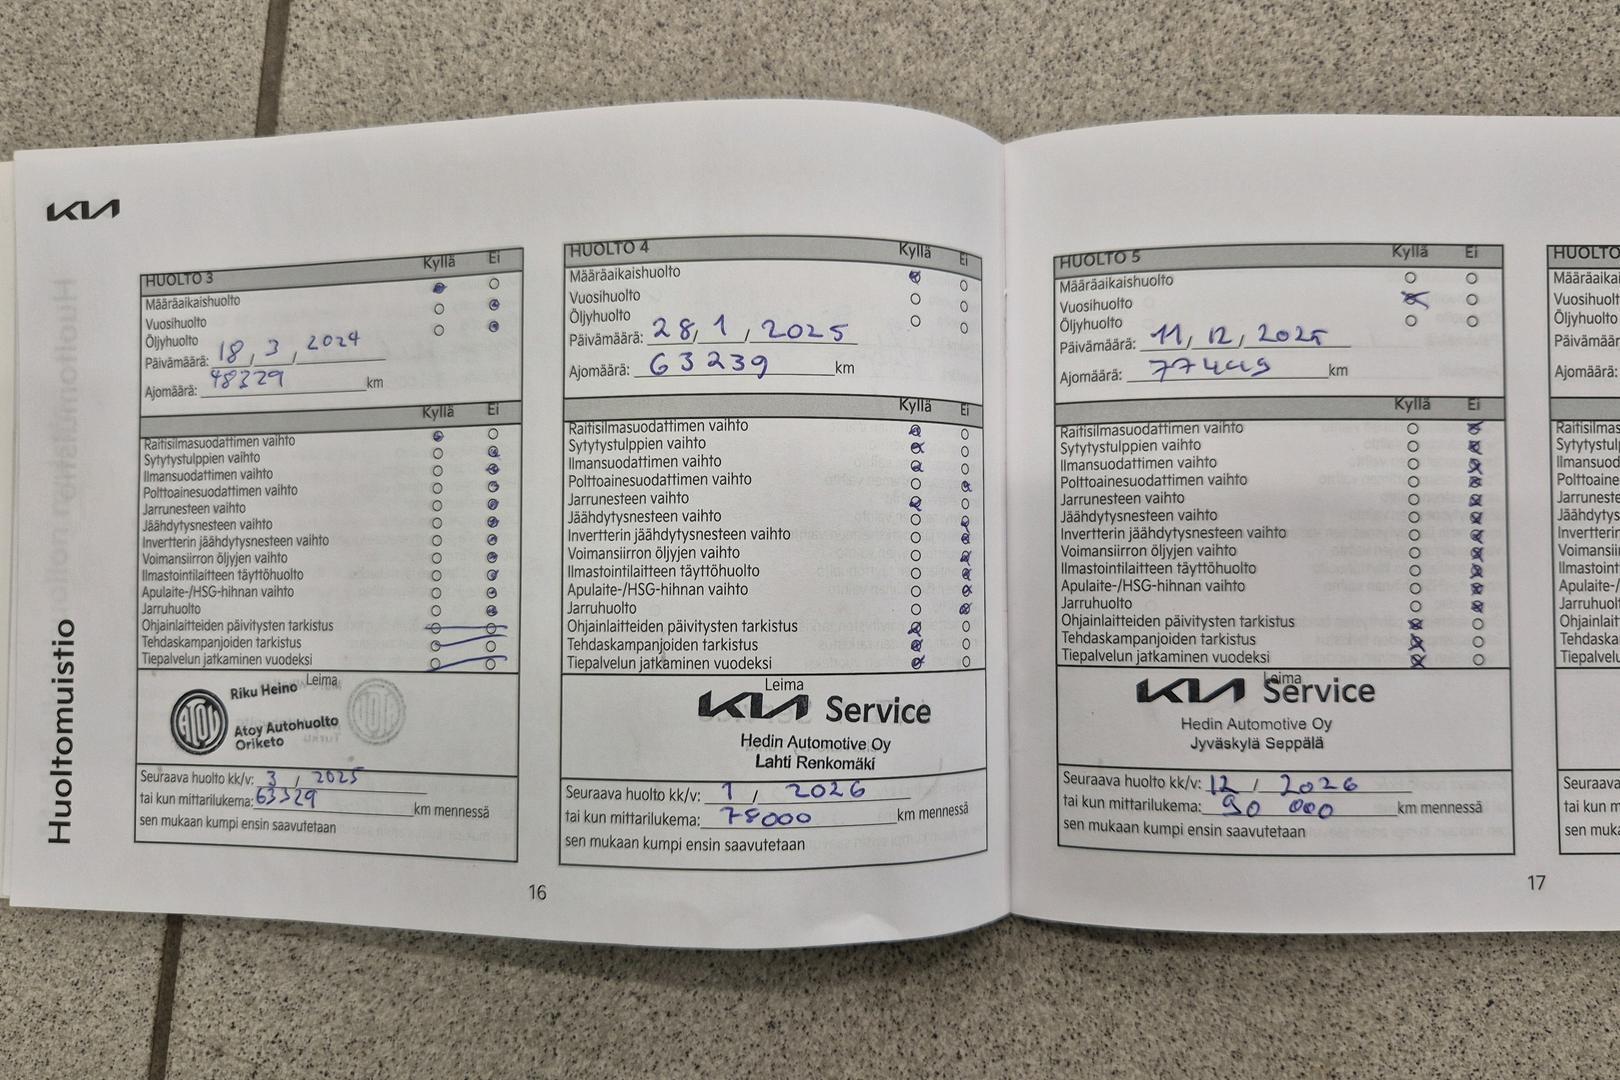 KIA
Huoltomuistio
HUOLTO 3
Kyllä Ei
Määräaikaishuolto
Vuosihuolto
Öljyhuolto
Päivämäärä: 18, 3, 2024
Ajomäärä: 48329 km
Kyllä Ei
Raitisilmasuodattimen vaihto
Sytytystulppien vaihto
Ilmansuodattimen vaihto
Polttoainesuodattimen vaihto
Jarrunesteen vaihto
Jäähdytysnesteen vaihto
Invertterin jäähdytysnesteen vaihto
Voimansiirron öljyjen vaihto
Ilmastointilaitteen täyttöhuolto
Apulaite-/HSG-hihnan vaihto
Jarruhuolto
Ohjainlaitteiden päivitysten tarkistus
Tehdaskampanjoiden tarkistus
Tiepalvelun jatkaminen vuodeksi
Leima
Riku Heino
Atoy Autohuolto
Oriketo
Seuraava huolto kk/v: 3 / 2025
tai kun mittarilukema: 63329 km mennessä
sen mukaan kumpi ensin saavutetaan
HUOLTO 4
Kyllä Ei
Määräaikaishuolto
Vuosihuolto
Öljyhuolto
Päivämäärä: 28/ 1 / 2025
Ajomäärä: 63239 km
Kyllä Ei
Raitisilmasuodattimen vaihto
Sytytystulppien vaihto
Ilmansuodattimen vaihto
Polttoainesuodattimen vaihto
Jarrunesteen vaihto
Jäähdytysnesteen vaihto
Invertterin jäähdytysnesteen vaihto
Voimansiirron öljyjen vaihto
Ilmastointilaitteen täyttöhuolto
Apulaite-/HSG-hihnan vaihto
Jarruhuolto
Ohjainlaitteiden päivitysten tarkistus
Tehdaskampanjoiden tarkistus
Tiepalvelun jatkaminen vuodeksi
Leima
KIA Service
Hedin Automotive Oy
Lahti Renkomäki
Seuraava huolto kk/v: 1 / 2026
tai kun mittarilukema: 78000 km mennessä
sen mukaan kumpi ensin saavutetaan
16
HUOLTO 5
Kyllä Ei
Määräaikaishuolto
Vuosihuolto
Öljyhuolto
Päivämäärä: 11/ 12 / 2025
Ajomäärä: 77449 km
Kyllä Ei
Raitisilmasuodattimen vaihto
Sytytystulppien vaihto
Ilmansuodattimen vaihto
Polttoainesuodattimen vaihto
Jarrunesteen vaihto
Jäähdytysnesteen vaihto
Invertterin jäähdytysnesteen vaihto
Voimansiirron öljyjen vaihto
Ilmastointilaitteen täyttöhuolto
Apulaite-/HSG-hihnan vaihto
Jarruhuolto
Ohjainlaitteiden päivitysten tarkistus
Tehdaskampanjoiden tarkistus
Tiepalvelun jatkaminen vuodeksi
Leima
KIA Service
Hedin Automotive Oy
Jyväskylä Seppälä
Seuraava huolto kk/v: 12 / 2026
tai kun mittarilukema: 90 000 km mennessä
sen mukaan kumpi ensin saavutetaan
17
HUOLTO
Määräaikai
Vuosihuolt
Öljyhuolto
Päivämäär
Ajomäärä:
Raitisilmas
Sytytystul
Ilmansuod
Polttoaine
Jarruneste
Jäähdytys
Invertterin
Voimansii
Ilmastoint
Apulaite-/
Jarruhuol
Ohjainlait
Tehdaska
Tiepalvelu
Seuraava
tai kun m
sen muka